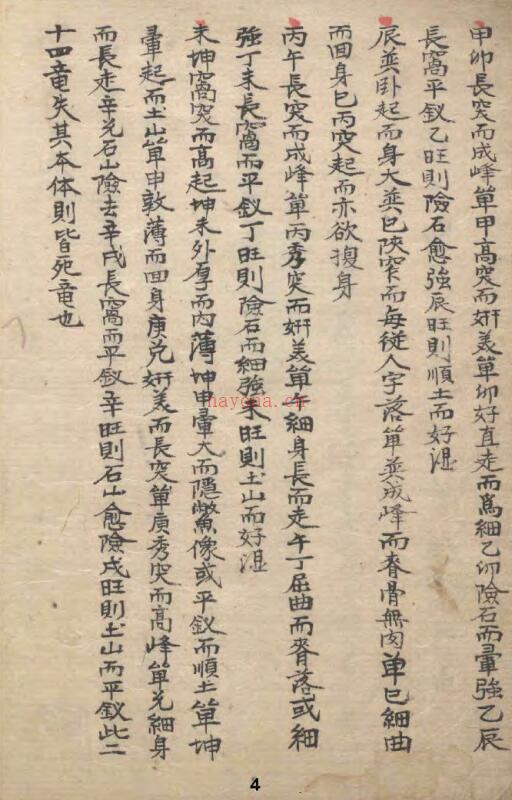 甲卯長突而成峰單甲高突而姸美單卯好直走而爲細乙卯險石而暈強乙辰
長窩平釵乙旺則險石愈強辰旺則順土而好混
辰巽卧起而身大巽巳陜窄而每從人字落單巽成峰而脊骨無肉單巳細曲
而回身巳丙突起而亦欲搜身
丙午長突而成峰單丙秀突而姸美單午細身長而走午丁屈曲而脊落或細
強丁未長窩而平釵丁旺則險石而細強未旺則土山而好混
未坤窩突而高起坤未外厚而內薄坤申暈大而隱幣魚像或平釵而順土單坤
暈起而土山單申敦薄而回身庚兌姸美而長突單庚秀突而高峰單兌細身
而長走辛兌石山險去辛戌長窩而平釵辛旺則石山愈險戌旺則土山而平釵此二
十四竜失其本体則皆死竜也
haygua.cn
4